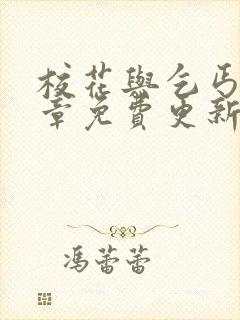 校花與乞丐
章免費更新
馮蕾蕾